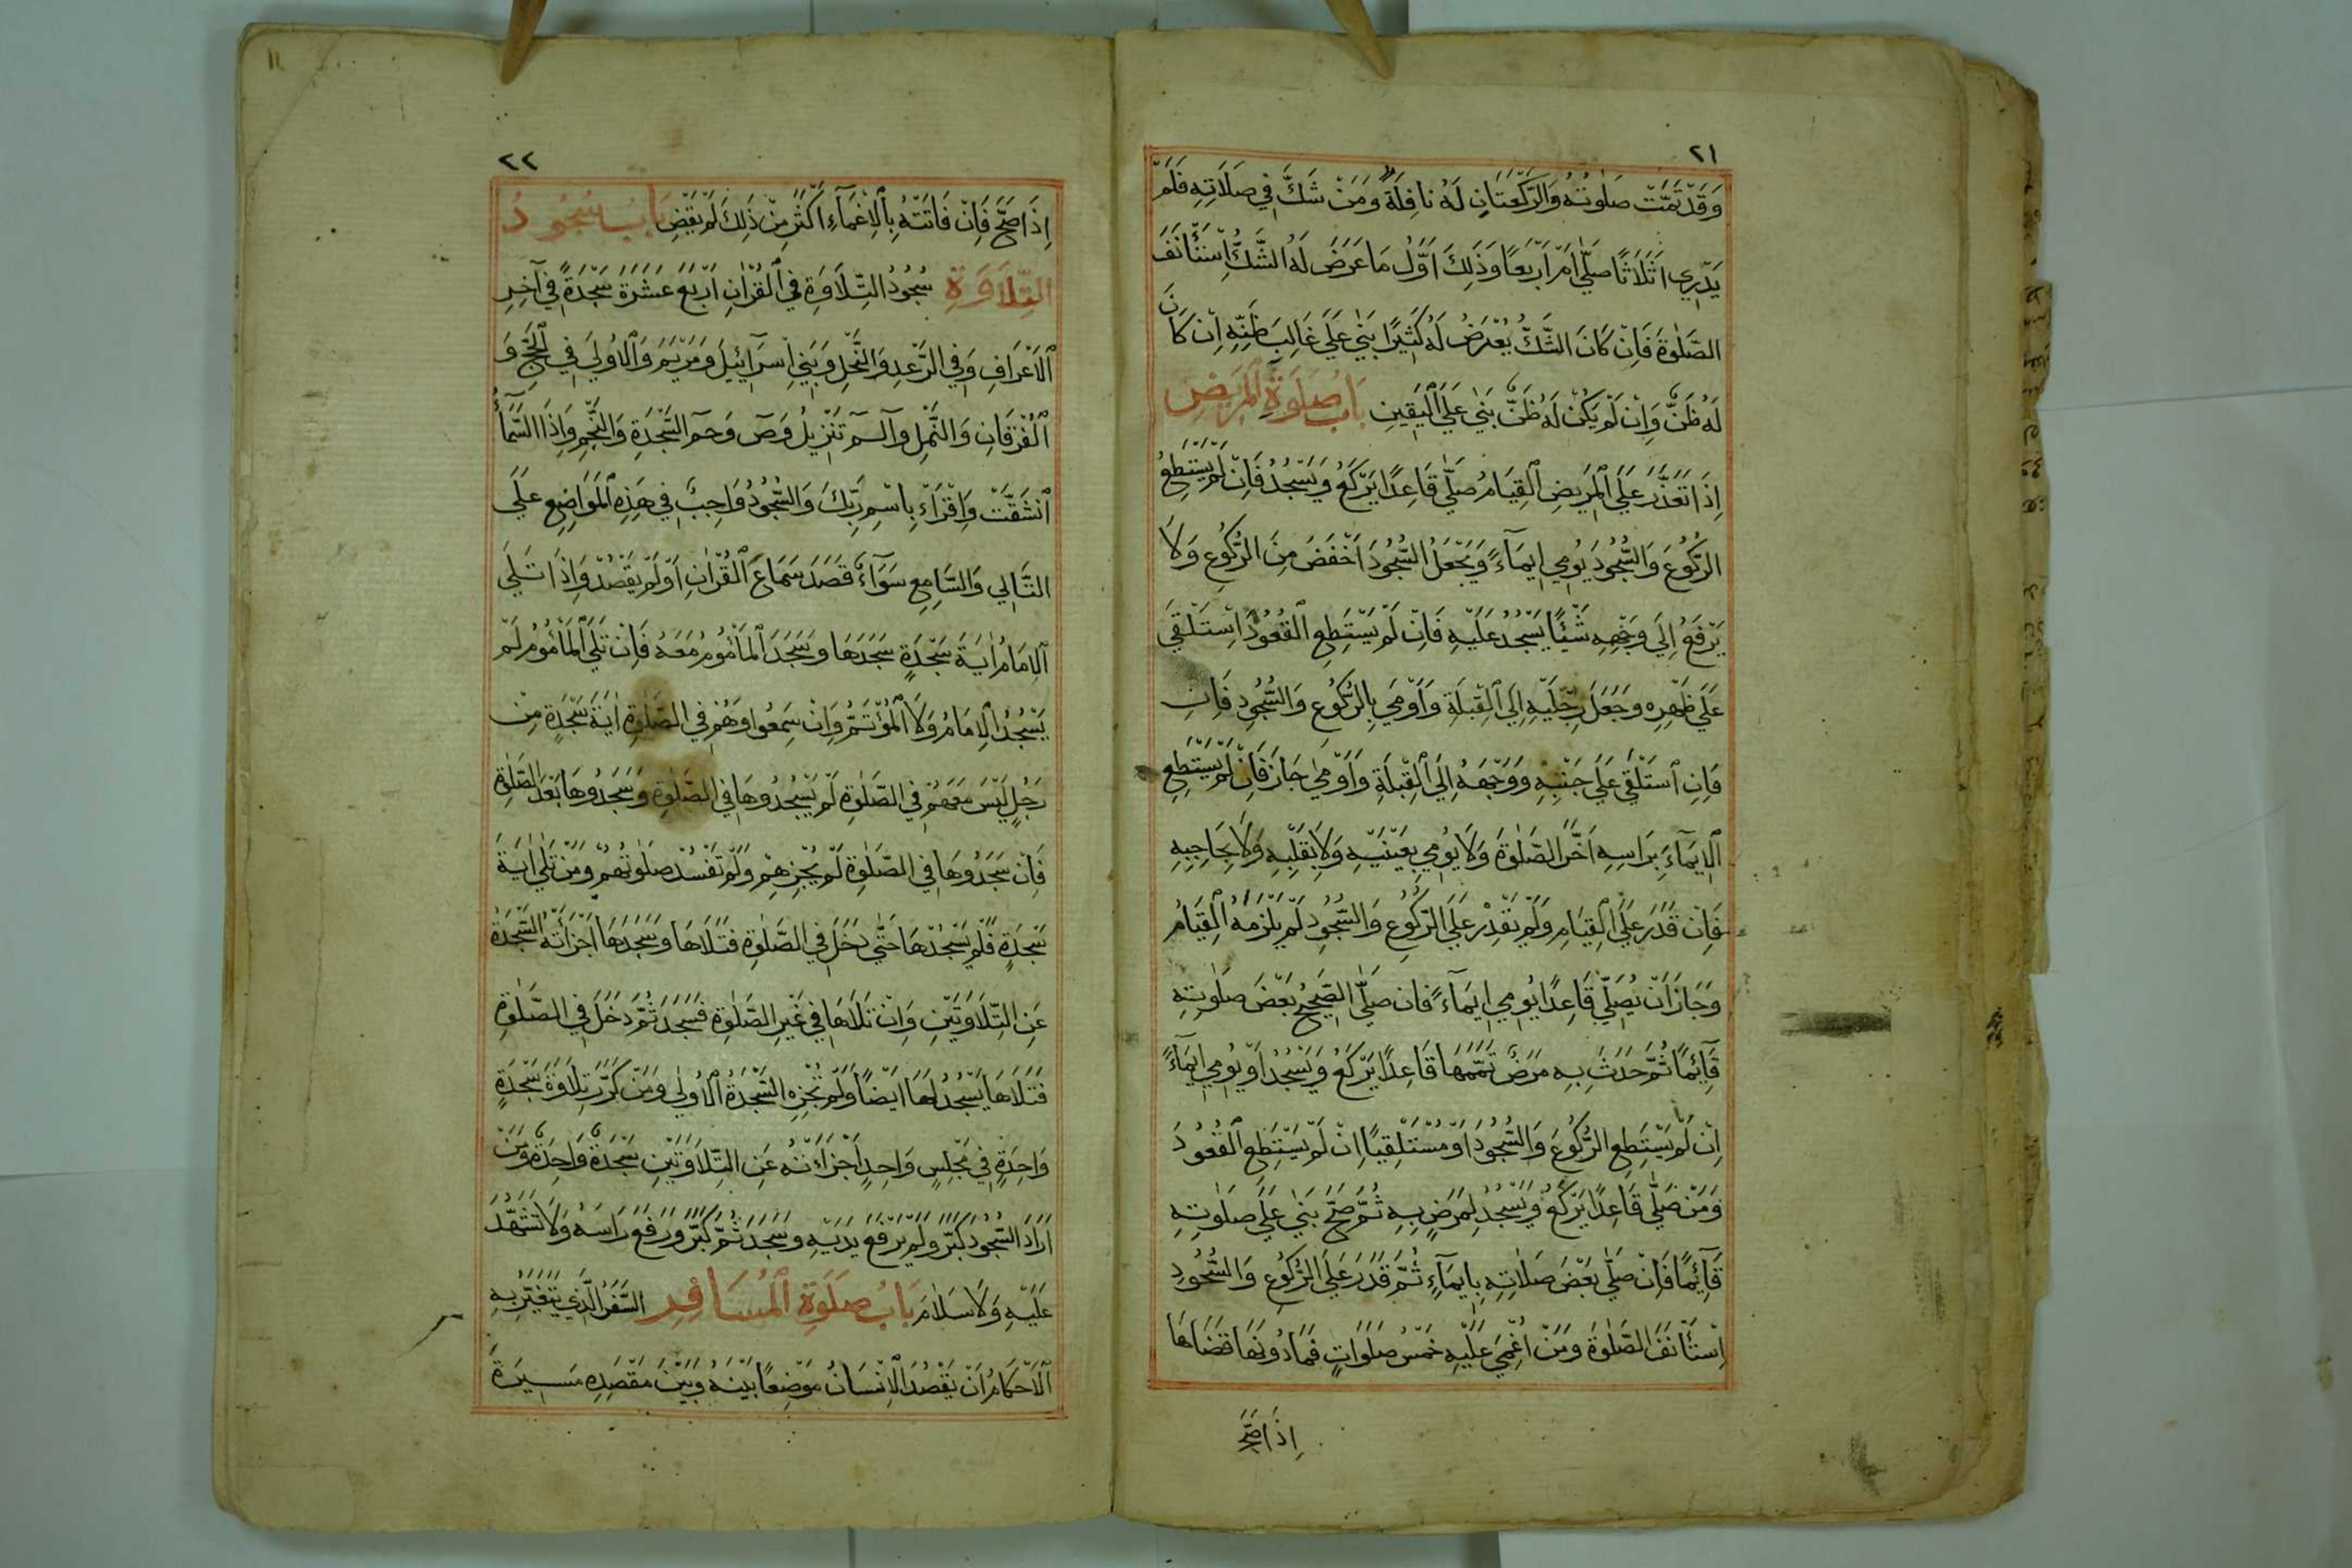 ٢١
وَقَدْ تَمَّتْ صَلٰوتُهُ وَالرَّكْعَتَانِ لَهُ نَافِلَةٌ وَمَنْ شَكَّ فِي صَلَاتِهِ فَلَمْ
يَدْرِي اَثَلَاثًا صَلّٰي اَمْ اَرْبَعًا وَذٰلِكَ اَوَّلُ مَا عَرَضَ لَهُ الشَّكُّ اِسْتَأْنَفَ
الصَّلٰوةَ فَاِنْ كَانَ الشَّكُّ يُعْرَضُ لَهُ كَثِيْرًا بَنٰي عَلَي غَالِبَ ظَنِّهِ اِنْ كَانَ
لَهُ ظَنٌّ وَاِنْ لَمْ يَكُنْ لَهُ ظَنٌّ بَنٰي عَلَي الْيَقِيْنِ بَابُ صَلَوةِ الْمَرِيْضِ
اِذَا تَعَذَّرَ عَلَي الْمَرِيْضِ الْقِيَامُ صَلَّي قَاعِدًا يَرْكَعُ وَيَسْجُدُ فَاِنْ لَمْ يَسْتَطِعِ
الرُّكُوْعَ وَالسُّجُوْدَ يُوْمِي اِيْمَآءً وَيَجْعَلُ السُّجُوْدَ اَخْفَضَ مِنَ الرُّكُوْعِ وَلَا
يَرْفَعُ اِلَي وَجْهِهِ شَيْئًا يَسْجُدُ عَلَيْهِ فَاِنْ لَمْ يَسْتَطِعِ الْقُعُوْدَ اِسْتَلْقَي
عَلَي ظَهْرِهِ وَجَعَلَ رِجْلَيْهِ اِلَي الْقِبْلَةِ وَاَوْمَي بِالرُّكُوْعِ وَالسُّجُوْدِ فَاِنِ
فَاِنِ اسْتَلْقَي عَلَي جَنْبِهِ وَوَجْهَهُ اِلَي الْقِبْلَةِ وَاَوْمٰي جَازَ فَاِنْ لَمْ يَسْتَطِعِ
الْاِيْمَآءَ بِرَاسِهِ اَخَّرَ الصَّلٰوةَ وَلَا يُوْمِي بِعَيْنَيْهِ وَلَا بِقَلْبِهِ وَلَا بِحَاجِبِهِ
فَاِنْ قَدَرَ عَلَي الْقِيَامِ وَلَمْ يَقْدِرْ عَلَي الرُّكُوْعِ وَالسُّجُوْدِ لَمْ يَلْزَمْهُ الْقِيَامُ
وَجَازَ اَنْ يُصَلِّيَ قَاعِدًا يُوْمِي اِيْمَآءً فَان صَلَّي الصَّحِيْحُ بَعْضَ صَلٰوتِهِ
قَآئِمًا ثُمَّ حَدَثَ بِهِ مَرَضٌ تَمَّمَهَا قَاعِدًا يَرْكَعُ وَيَسْجُدُ اَوْ يُوْمِي اِيْمَآءً
اِنْ لَمْ يَسْتَطِعِ الرُّكُوْعَ وَالسُّجُوْدَ اَوْ مُسْتَلْقِيًا اِنْ لَمْ يَسْتَطِعِ الْقُعُوْدَ
وَمَنْ صَلَّي قَاعِدًا يَرْكَعُ وَيَسْجُدُ لِمَرَضٍ بِهِ ثُمَّ صَحَّ بَنٰي عَلَي صَلٰوتِهِ
قَآئِمًا فَاِنْ صَلّٰي بَعْضَ صَلَاتِهِ بِاِيْمَآءٍ ثُمَّ قَدَرَ عَلَي الرُّكُوْعِ وَالسُّجُوْدِ
اِسْتَأْنَفَ الصَّلٰوةَ وَمَنْ اُغْمِيَ عَلَيْهِ خَمْسُ صَلَوَاتٍ فَمَا دُوْنَهَا قَضَاهَا
اِذَا صَحَّ
٢٢
اِذَا صَحَّ فَاِنْ فَاتَتْهُ بِالْاِغْمَآءِ اَكْثَرَ مِنْ ذٰلِكَ لَمْ يَقْضِ بَابُ سُجُوْدُ
التِّلَاوَةِ سُجُوْدُ التِّلَاوَةِ فِي الْقُرْاٰنِ اَرْبَعَ عَشْرَةَ سَجْدَةً فِي آخِرِ
الْاَعْرَافِ وَفِي الرَّعْدِ وَالنَّحْلِ وَبَنِي اِسْرَآئِيْلَ وَمَرْيَمَ وَالْاُوْلٰي فِي الْحَجِّ وَ
الْفُرْقَانِ وَالنَّمْلِ وآلٓمٓ تَنْزِيْلُ وَصٓ وَحٰمٓ السَّجْدَةِ وَالنَّجْمِ وَاِذَا السَّمَآءُ
انْشَقَّتْ وَاِقْرَاءْ بِاسْمِ رَبِّكَ وَالسُّجُوْدُ وَاجِبٌ فِي هٰذِهِ الْمَوَاضِعِ عَلَي
التَّالِي وَالسَّامِعِ سَوَآءٌ قَصَدَ سَمَاعَ الْقُرْاٰنِ اَوْ لَمْ يَقْصُدْ وَاِذَا تَلَي
الْاِمَامُ اٰيَةَ سَجْدَةٍ سَجَدَهَا وَسَجَدَ الْمَأْمُوْمُ مَعَهُ فَاِنْ تَلَي الْمَأْمُوْمُ لَمْ
يَسْجُدُ الْاِمَامُ وَلَا الْمُؤْتَمُّ وَاِنْ سَمِعُوا وَهُمْ فِي الصَّلٰوةِ اٰيَةَ سَجْدَةٍ مِنْ
رَجُلٍ لَيْسَ مَعَهُمْ فِي الصَّلٰوةِ لَمْ يَسْجُدُوْهَا فِي الصَّلٰوةِ وَسَجَدُوْهَا بَعْدَ الصَّلٰوةِ
فَاِنْ سَجَدُوْهَا فِي الصَّلٰوةِ لَمْ يُجْزِهِمْ وَلَمْ تَفْسُدْ صَلٰوتُهُمْ وَمَنْ تَلٰي اٰيَةَ
سَجْدَةٍ فَلَمْ يَسْجُدْهَا حَتّٰي دَخَلَ فِي الصَّلٰوةِ فَتَلَاهَا وَسَجَدَهَا اَجْزَأَتْهُ السَّجْدَةُ
عَنِ التِّلَاوَتَيْنِ وَاِنْ تَلَاهَا فِي غَيْرِ الصَّلٰوةِ فَسَجَدَ ثُمَّ دَخَلَ فِي الصَّلٰوةِ
فَتَلَاهَا يَسْجُدُ لَهَا اَيْضًا وَلَمْ تُجْزِهِ السَّجْدَةُ الْاُوْلٰي وَمَنْ كَرَّرَ تِلَاوَةَ سَجْدَةٍ
وَاحِدَةٍ فِي مَجْلِسٍ وَاحِدٍ اَجْزَاءَتْهُ عَنِ التِّلَاوَتَيْنِ سَجْدَةٌ وَاحِدَةٌ وَمَنْ
اَرَادَ السُّجُوْدَ كَبَّرَ وَلَمْ يَرْفَعْ يَدَيْهِ وَسَجَدَ ثُمَّ كَبَّرَ وَرَفَعَ رَاسَهُ وَلَا تَشَهُّدَ
عَلَيْهِ وَلَا سَلَامَ بَابُ صَلَوةِ الْمُسَافِرِ السَّفَرُ الَّذِي يَتَغَيَّرُ بِهِ
الْاَحْكَامُ اَنْ يَقْصُدَ الْاِنْسَانُ مَوْضِعًا بَيْنَهُ وَبَيْنَ مَقْصَدِهِ مَسِيْرَةَ